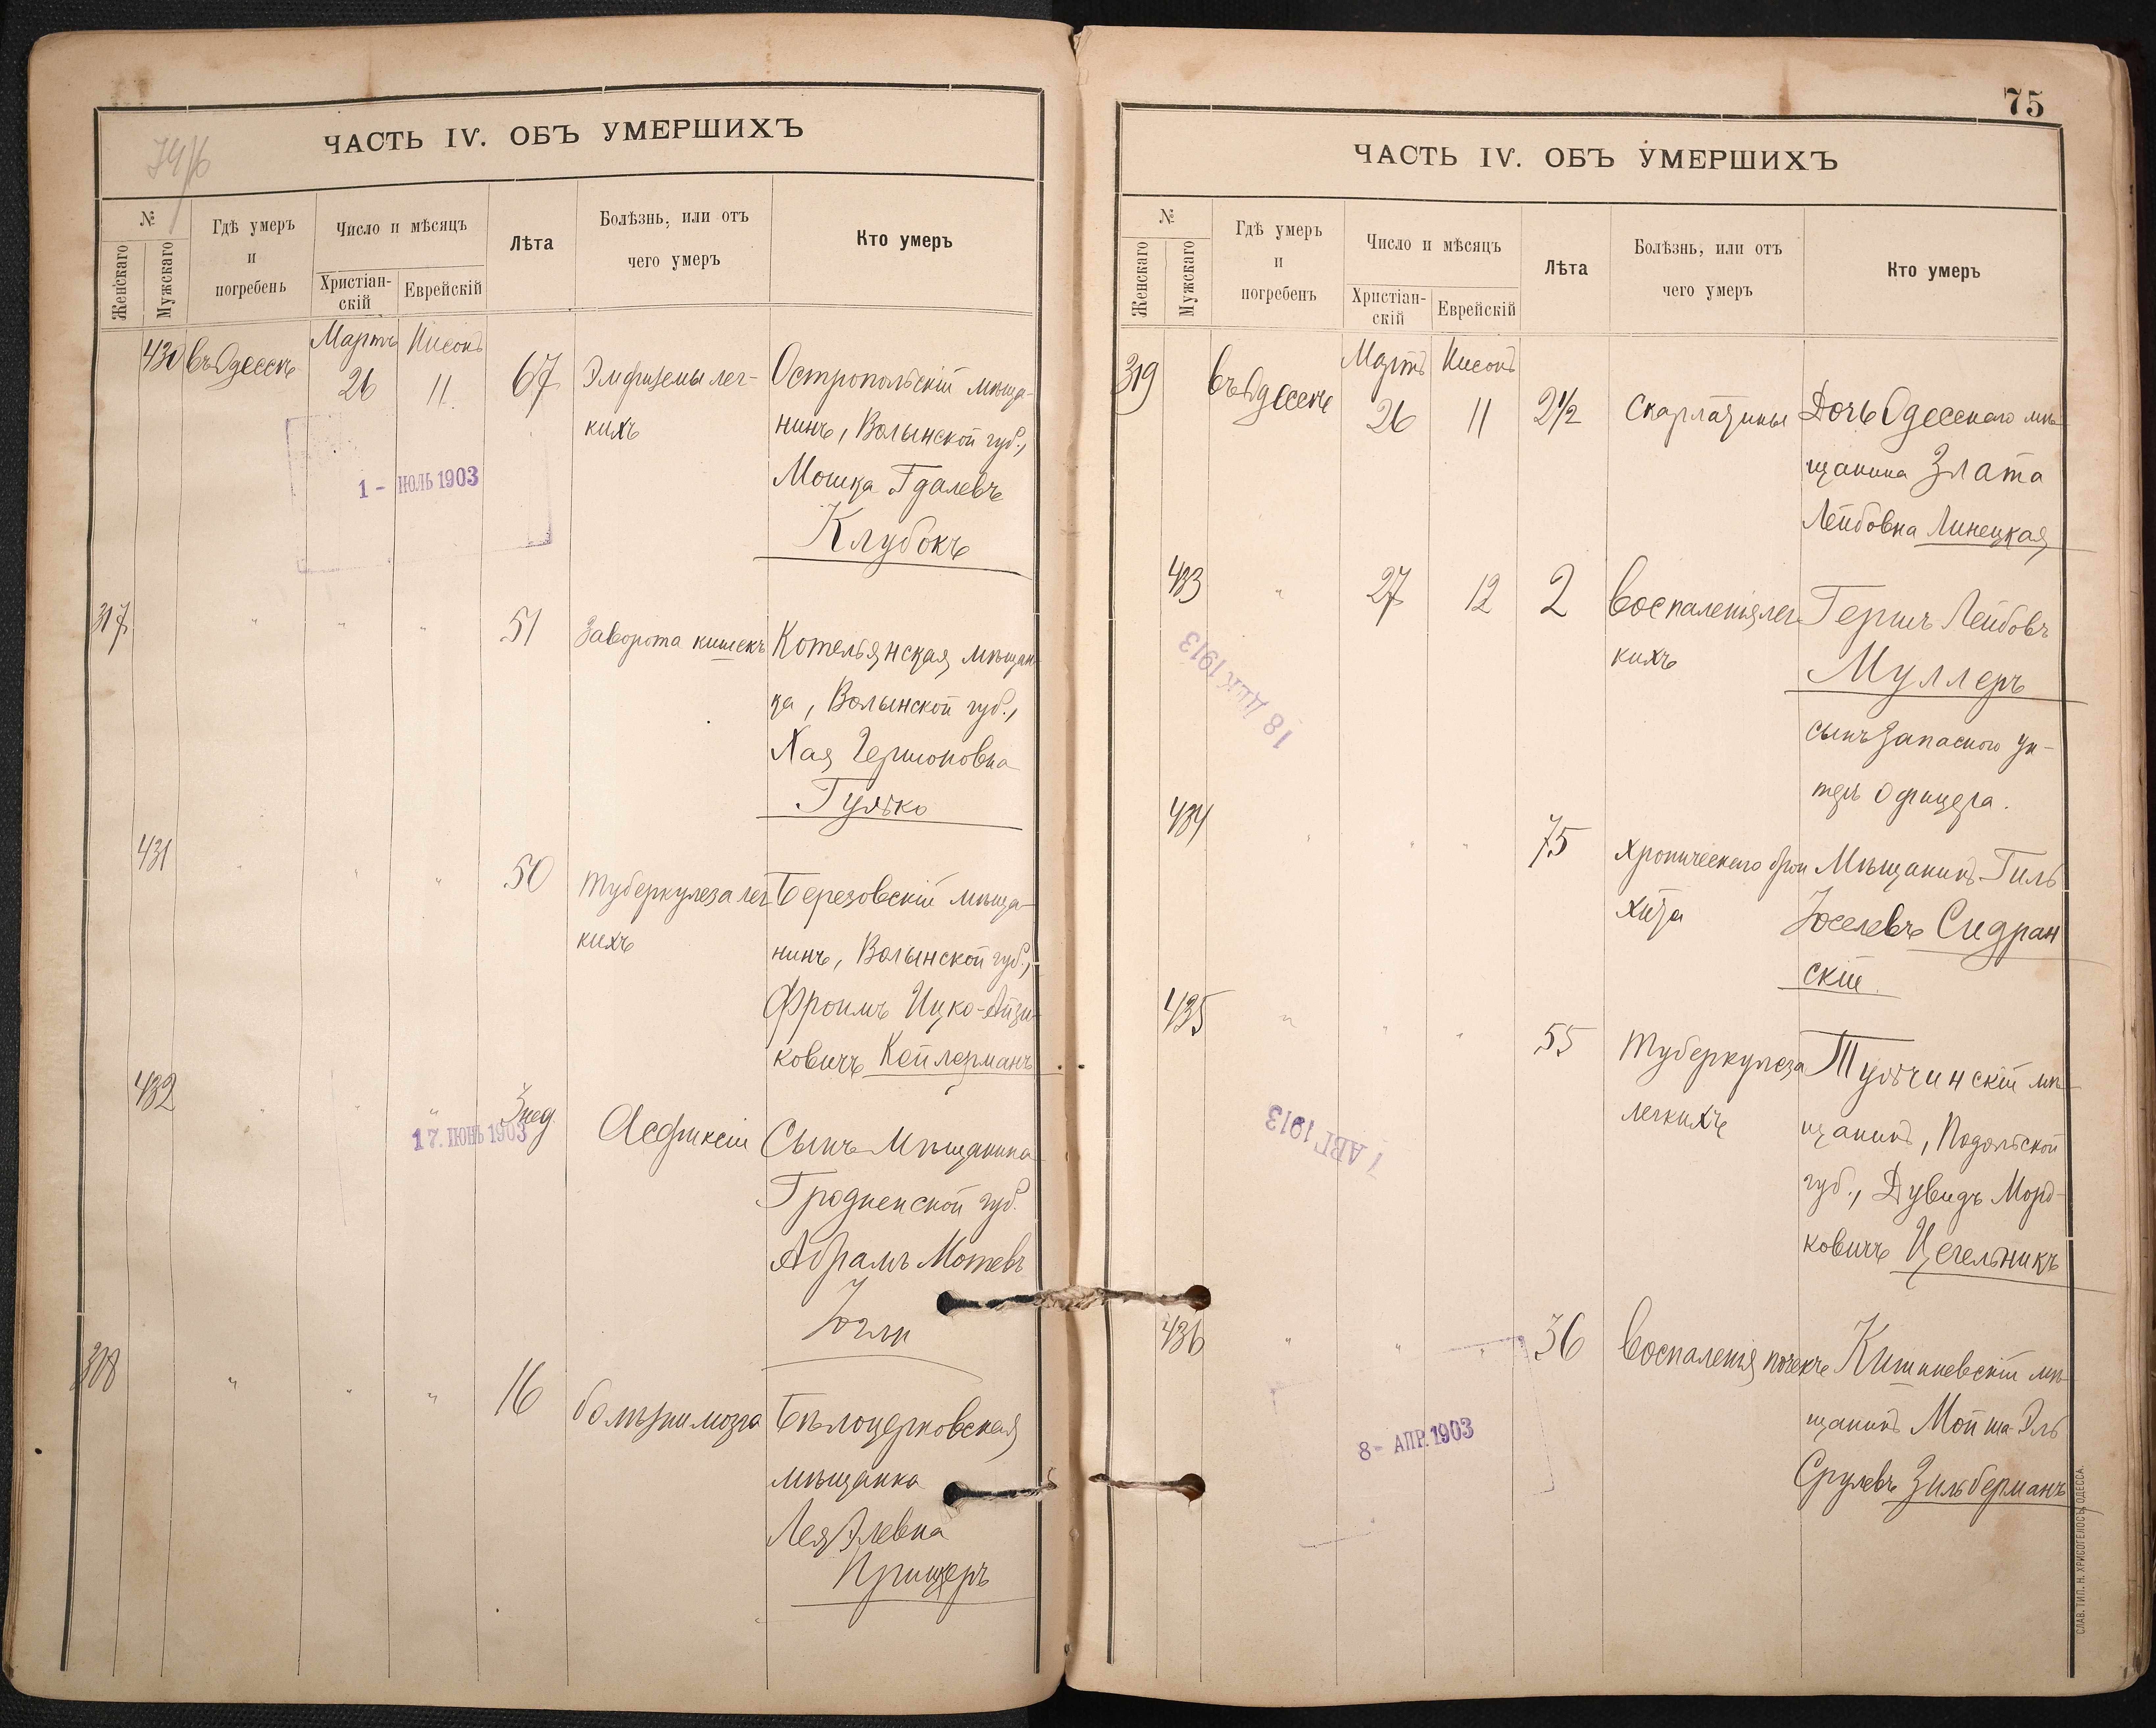 ЧАСТЬ IV. ОБЪ УМЕРШИХЪ
№
Женскаго
Мужскаго
Гдѣ умеръ
и
погребенъ
Число и мѣсяцъ
Христіан-
скій
Еврейскій
Лѣта
Болѣзнь, или отъ
чего умеръ
Кто умеръ
430 въ Одессѣ Мартъ 26 Нисонъ 11 67
Эмфиземы лег-
кихъ
Остропольскій мѣща-
нинъ, Волынской губ.,
Мошка Гдалевъ
Клубокъ
1 - ІЮЛЬ 1903
317 " " " 51
Заворота кишекъ
Котельянская мѣщан-
ка, Волынской губ.,
Хая Гершоновна
Гулько
431 " " " 50
Туберкулеза лег-
кихъ
Березовскій мѣща-
нинъ, Волынской губ.,
Фроимъ Ицко-Айзи-
ковичъ Кейлерманъ
432 " " " 3 нед.
17. ІЮНЬ 1903
Асфиксіи
Сынъ Мѣщанина
Гродненской губ.
Абрамъ Мотевъ
318 " " " 16
болѣзни мозга
Бѣлоцерковская
мѣщанка
Лея Элевна
75
ЧАСТЬ IV. ОБЪ УМЕРШИХЪ
№
Женскаго
Мужскаго
Гдѣ умеръ
и
погребенъ
Число и мѣсяцъ
Христіан-
скій
Еврейскій
Лѣта
Болѣзнь, или отъ
чего умеръ
Кто умеръ
319 въ Одессѣ Мартъ 26 Нисонъ 11 2 1/2
Скарлатины
Дочь Одесскаго мѣ-
щанина Злата
Лейбовна Линецкая
433 " 27 12 2
Воспаленія лег-
кихъ
Гершъ Лейбовъ
Муллеръ
сынъ запаснаго ун-
теръ офицера.
18 ДЕК 1913
434 " " " 75
Хроническаго брон
хита
Мѣщанинъ Гиль
Юселевъ Сидран
скій.
435 " " " 55
Туберкулеза
легкихъ
Тульчинскій мѣ-
щанинъ, Подольской
губ., Дувидъ Морд-
ковичъ Цегельникъ
7 АВГ 1913
436 " " " 36
Воспаленія почекъ
Кишиневскій мѣ-
щанинъ Мойша-Эль
Срулевъ Зильберманъ
8 - АПР. 1903
СЛАВ. ТИП. Н. ХРИСОГЕЛОСЪ, ОДЕССА.